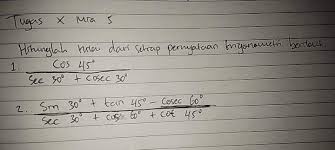 Tugas X MIA 5
Hitunglah nilai dari setiap pernyataan trigonometri berikut.
1. cos 45°
sec 30° + cosec 30°
2. Sin 30° + tan 45° - cosec 60°
sec 30° + cos 60° + cot 45°